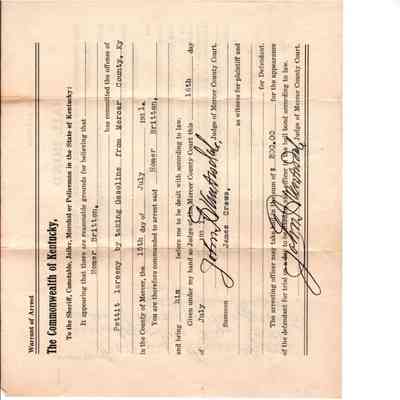 Warrant of Arrest
The Commonwealth of Kentucky,
To the Sheriff, Constable, Jailer, Marshal or Policeman in the State of Kentucky:
It appearing that there are reasonable grounds for believing that
Homer Britton,
has committed the offense of
Pettit larceny by taking Gasoline from Mercer County, Ky
in the County of Mercer, the 15th day of July 1931.
You are therefore commanded to arrest said Homer Britton,
and bring him before me to be dealt with according to law.
Given under my hand as Judge of the Mercer County Court this 16th day
of July 193
Judge of Mercer County Court.
Summon James Crews,
as witness for plaintiff and
for Defendant.
The arresting officer may take bail in the sum of $ 200.00 for the appearance
of the defendant for trial on a day to be fixed by said officer in the bail bond according to law.
Judge of Mercer County Court.